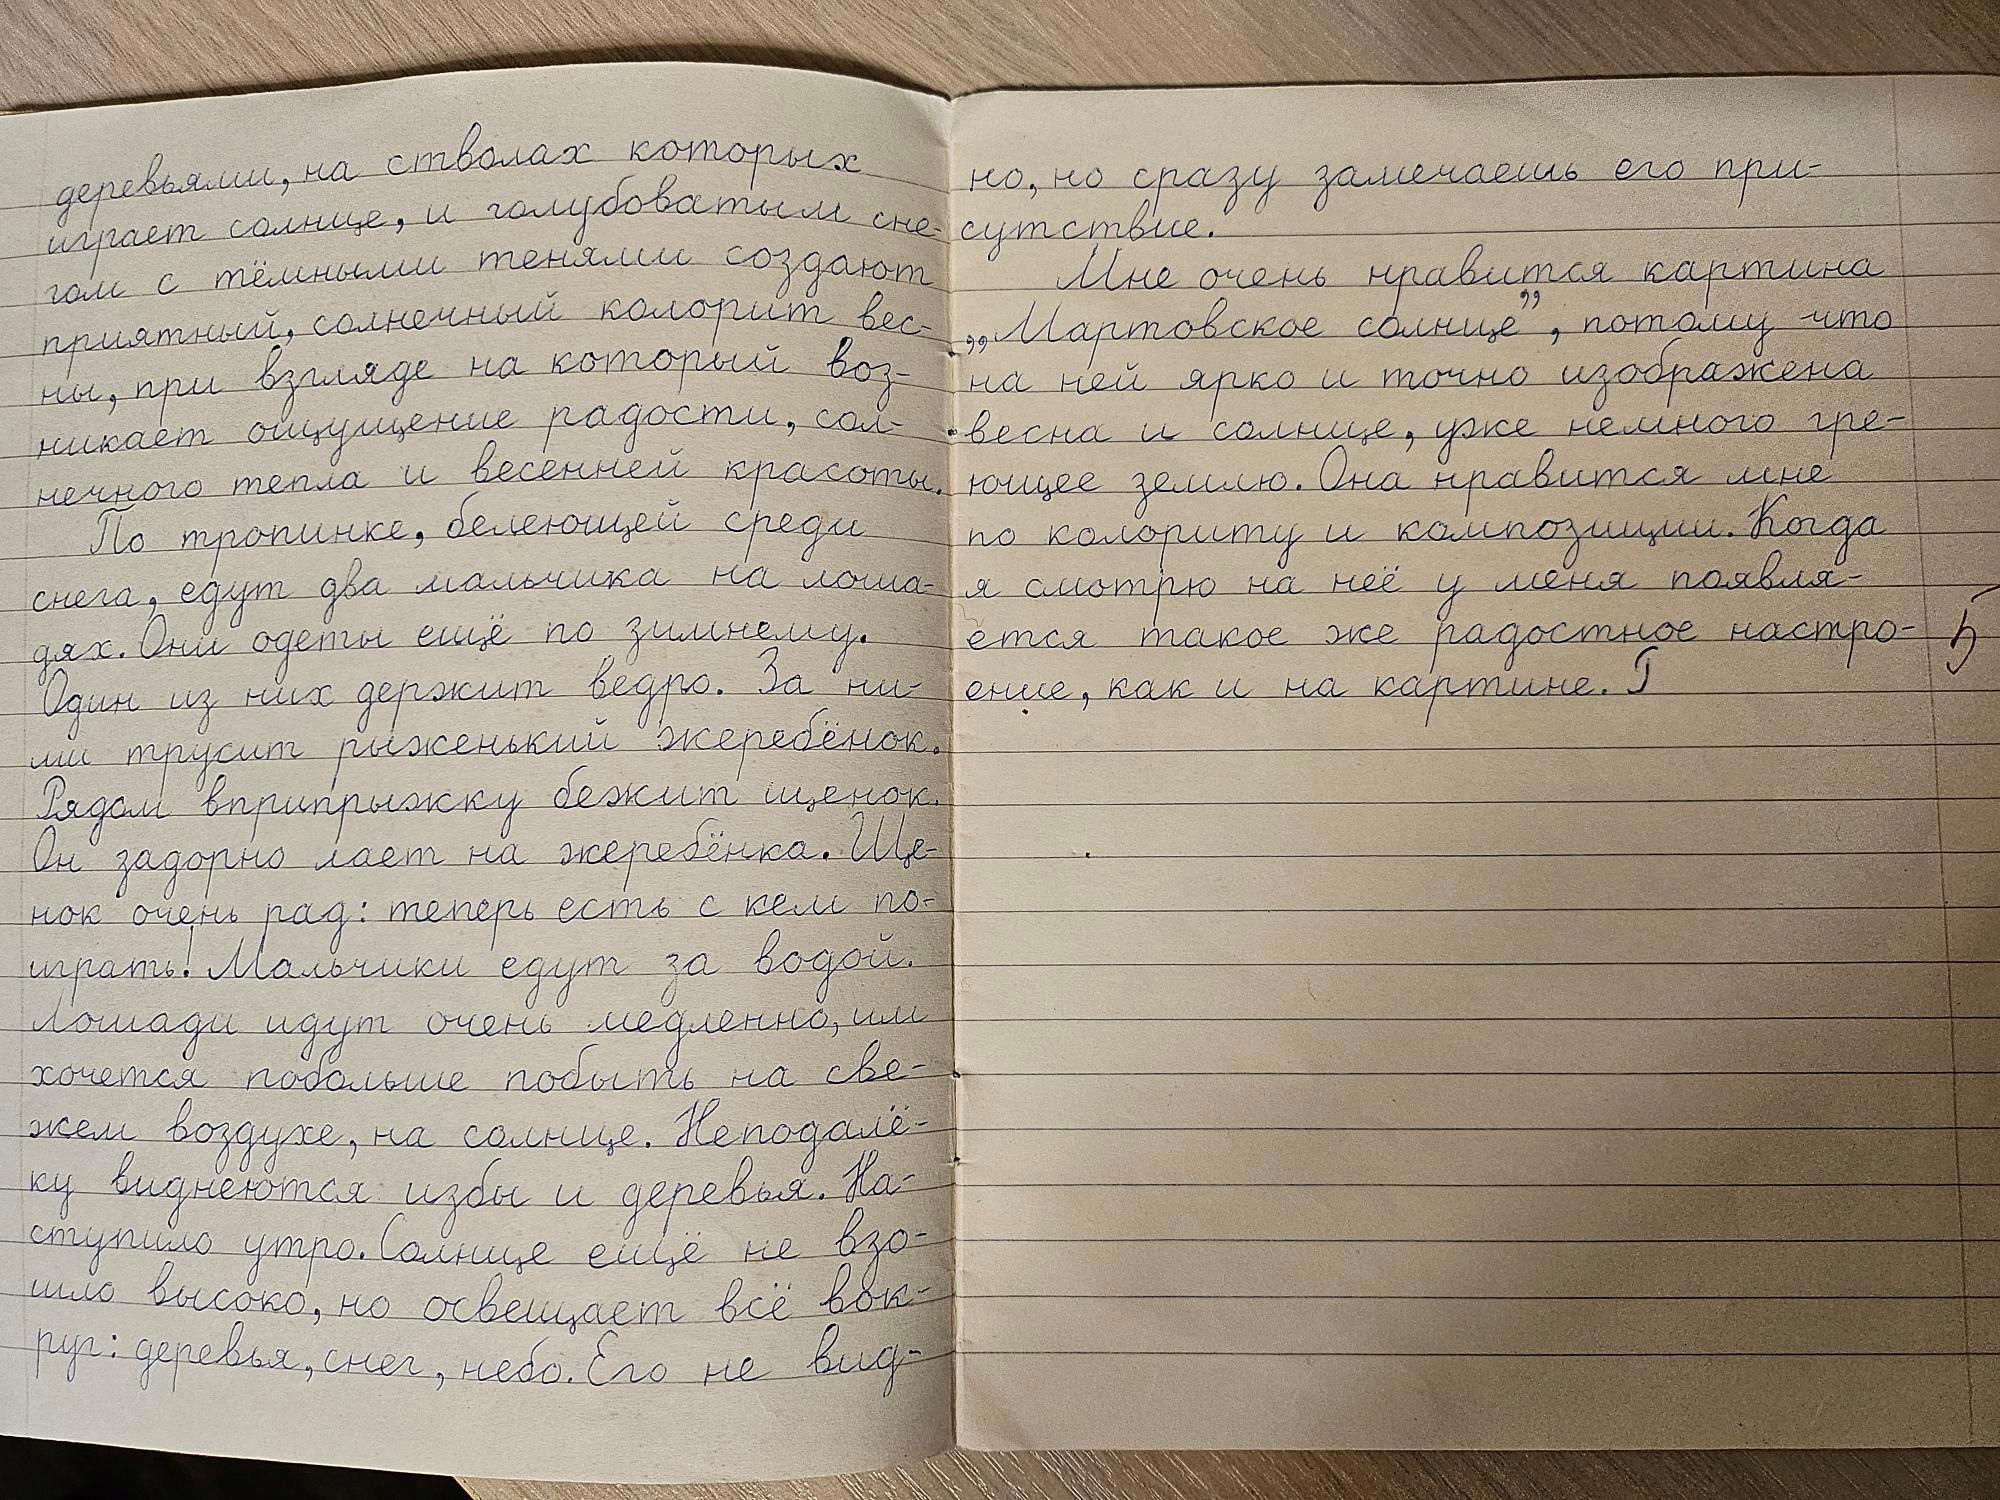 деревьями, на стволах которых
играет солнце, и голубоватым сне-
гом с тёмными тенями создают
приятный, солнечный колорит вес-
ны, при взгляде на который воз-
никает ощущение радости, сол-
нечного тепла и весенней красоты.
По тропинке, белеющей среди
снега, едут два мальчика на лоша-
дях. Они одеты ещё по зимнему.
Один из них держит ведро. За ни-
ми трусит рыженький жеребёнок.
Рядом вприпрыжку бежит щенок.
Он задорно лает на жеребёнка. Ще-
нок очень рад: теперь есть с кем по-
играть! Мальчики едут за водой.
Лошади идут очень медленно, им
хочется побольше побыть на све-
жем воздухе, на солнце. Неподалё-
ку виднеются избы и деревья. На-
ступило утро. Солнце ещё не взо-
шло высоко, но освещает всё вок-
руг: деревья, снег, небо. Его не вид-
но, но сразу замечаешь его при-
сутствие.
Мне очень нравится картина
„Мартовское солнце”, потому что
на ней ярко и точно изображена
весна и солнце, уже немного гре-
ющее землю. Она нравится мне
по колориту и композиции. Когда
я смотрю на неё у меня появля-
ется такое же радостное настро-
ение, как и на картине. Г
5